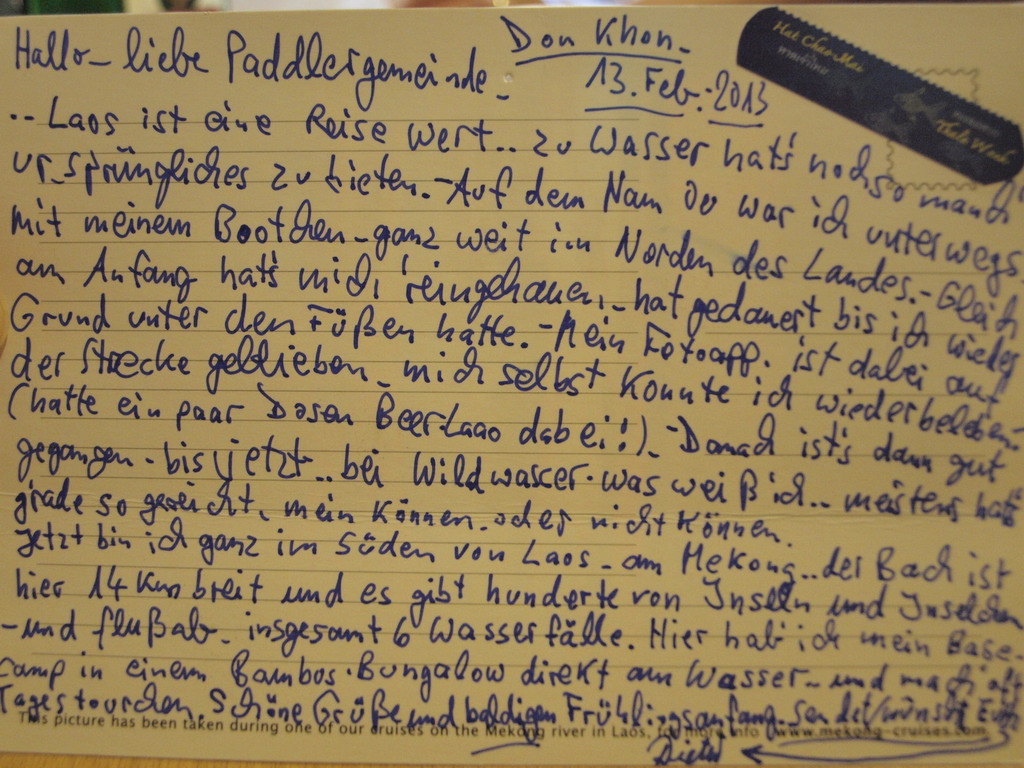 Don Khon
13. Feb. 2013
Hat Chao Mai
Hallo - liebe Paddlergemeinde -
.. Laos ist eine Reise wert .. zu Wasser hat's noch so manch
ursprüngliches zu bieten. - Auf dem Nam Ou war ich unterwegs
mit meinem Bootchen - ganz weit im Norden des Landes. - Gleich
am Anfang hat's mich 'reingehauen, - hat gedauert bis ich wieder
Grund unter den Füßen hatte. - Mein Fotoapp. ist dabei auf
der Strecke geblieben - mich selbst konnte ich wiederbeleben -
(hatte ein paar Dosen BeerLaao dabei!) - Danach ist's dann gut
gegangen - bis jetzt .. bei Wildwasser - was weiß ich .. meistens hat's
grade so gereicht, mein Können - oder nicht Können.
Jetzt bin ich ganz im Süden von Laos - am Mekong .. der Bach ist
hier 14 Km breit und es gibt hunderte von Inseln und Inselchen
- und flußab - insgesamt 6 Wasserfälle. Hier hab' ich mein Base-
camp in einem Bambos-Bungalow direkt am Wasser - und mach' oft
Tagestourchen. Schöne Grüße und baldigen Frühlingsanfang - sendet/wünscht Euch
This picture has been taken during one of our cruises on the Mekong river in Laos, for more info : www.mekong-cruises.com
Dieter